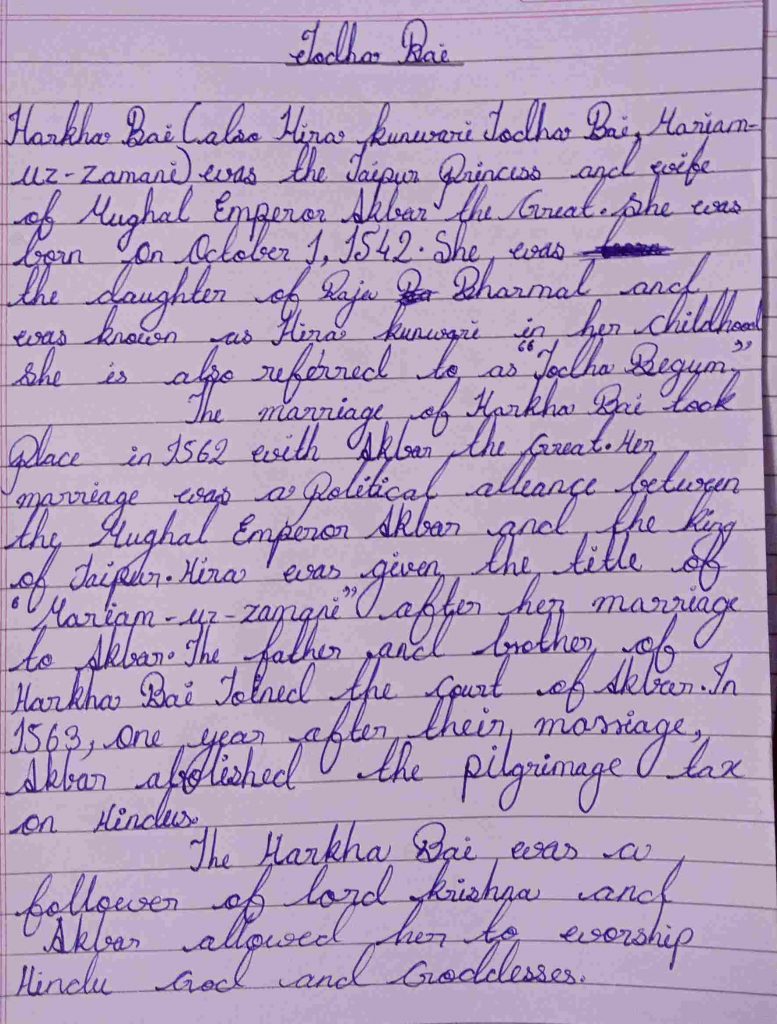 Jodha Bai
Harkha Bai (also Hira kunwari Jodha Bai, Mariam-
uz-zamani) was the Jaipur Princess and wife
of Mughal Emperor Akbar the Great. She was
born on October 1, 1542. She was
the daughter of Raja Bharmal and
was known as Hira kunwari in her childhood
She is also referred to as "Jodha Begum"
The marriage of Harkha Bai took
Place in 1562 with Akbar the Great. Her
marriage was a Political alliance between
the Mughal Emperor Akbar and the king
of Jaipur. Hira was given the title of
"Mariam-uz-zamani" after her marriage
to Akbar. The father and brother of
Harkha Bai Joined the court of Akbar. In
1563, one year after their marriage,
Akbar abolished the pilgrimage tax
on Hindus.
The Harkha Bai was a
follower of lord krishna and
Akbar allowed her to worship
Hindu God and Goddesses.